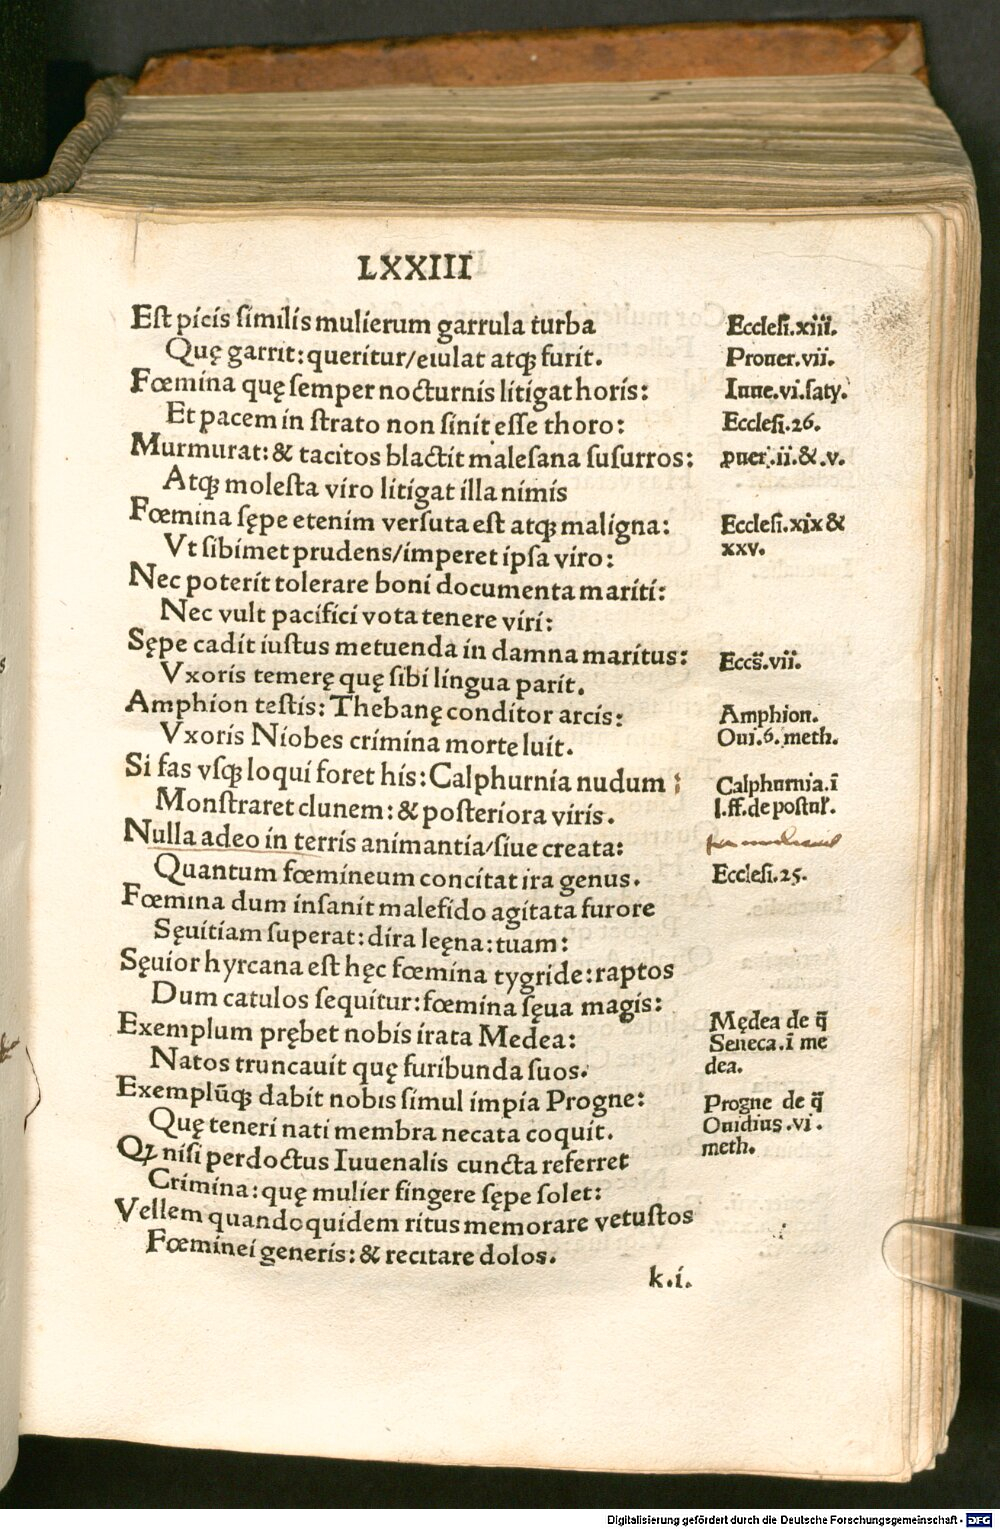 LXXIII
Est picis similis mulierum garrula turba
Ecclesi.xiii.
Quę garrit: queritur/eiulat atqꝫ furit.
Prouer.vii.
Fœmina quę semper nocturnis litigat horis:
Iuue.vi.saty.
Et pacem in strato non sinit esse thoro:
Ecclesi.26.
Murmurat: & tacitos blactit malesana susurros:
ꝓuer.ii.&.v.
Atqꝫ molesta viro litigat illa nimis
Fœmina sępe etenim versuta est atqꝫ maligna:
Ecclesi.xix &
Vt sibimet prudens/imperet ipsa viro:
xxv.
Nec poterit tolerare boni documenta mariti:
Nec vult pacifici vota tenere viri:
Sępe cadit iustus metuenda in damna maritus:
Eccs̄.vii.
Vxoris temerę quę sibi lingua parit.
Amphion testis: Thebanę conditor arcis:
Amphion.
Vxoris Niobes crimina morte luit.
Oui.6.meth.
Si fas vsqꝫ loqui foret his: Calphurnia nudum :
Calphurnia.ī
Monstraret clunem: & posteriora viris.
l.ff.de postul.
Nulla adeo in terris animantia/siue creata:
Quantum fœmineum concitat ira genus.
Ecclesi.25.
Fœmina dum insanit malefido agitata furore
Sęuitiam superat: dira leęna: tuam:
Sęuior hyrcana est hęc fœmina tygride: raptos
Dum catulos sequitur: fœmina sęua magis:
Exemplum prębet nobis irata Medea:
Mędea de q̄
Seneca.ī me
Natos truncauit quę furibunda suos.
dea.
Exemplūqꝫ dabit nobis simul impia Progne:
Progne de q̄
Quę teneri nati membra necata coquit.
Ouidius.vi.
Qꝫ nisi perdoctus Iuuenalis cuncta referret
meth.
Crimina: quę mulier fingere sępe solet:
Vellem quandoquidem ritus memorare vetustos
Fœminei generis: & recitare dolos.
k.i.
Digitalisierung gefördert durch die Deutsche Forschungsgemeinschaft - DFG